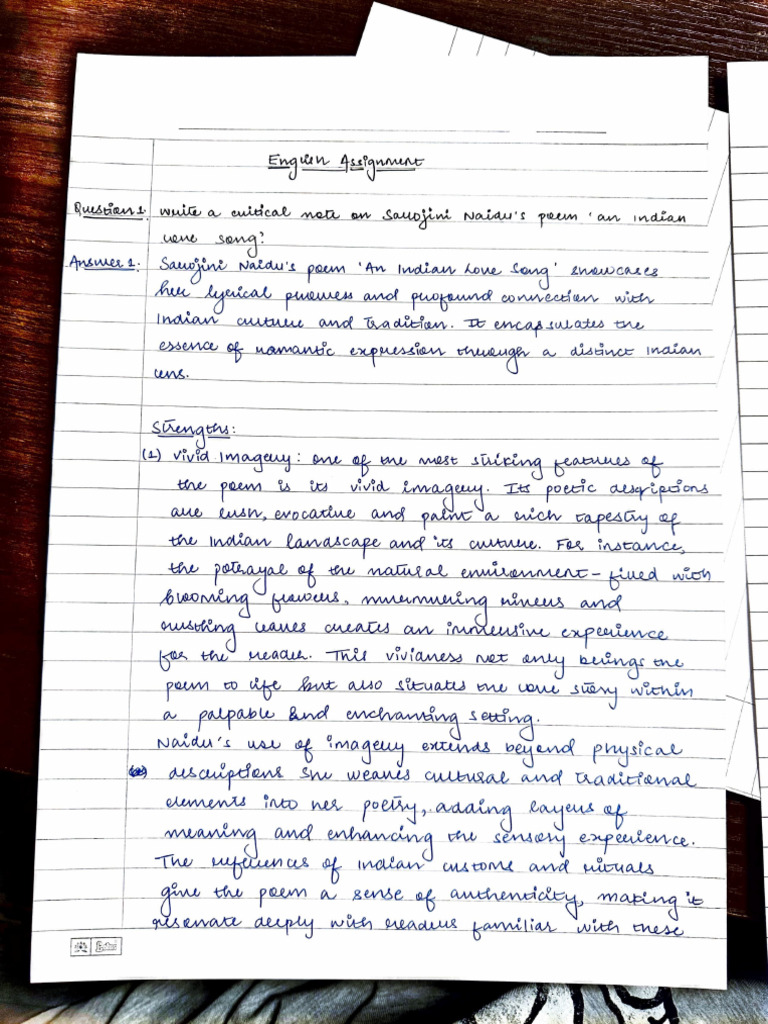 English Assignment
Question 1. Write a critical note on Sarojini Naidu's poem 'an Indian
love song?
Answer 1: Sarojini Naidu's poem 'An Indian Love Song' showcases
her lyrical prowess and profound connection with
Indian culture and tradition. It encapsulates the
essence of romantic expression through a distinct Indian
lens.
Strengths:
(1) Vivid Imagery: one of the most striking features of
the poem is its vivid imagery. Its poetic descriptions
are lush, evocative and paint a rich tapestry of
the Indian landscape and its culture. For instance,
the potrayal of the natural environment - filled with
blooming flowers, murmuring rivers and
rusthing leaves creates an immersive experience
for the reader. This vividness not only beings the
poem to life but also situates the love story within
a palpable and enchanting setting.
Naidu's use of imagery extends beyond physical
descriptions she weaves cultural and traditional
elements into her poetry, adding layers of
meaning and enhancing the sensory experience.
The references of Indian customs and rituals
give the poem a sense of authenticity, making it
resonate deeply with readers familiar with these